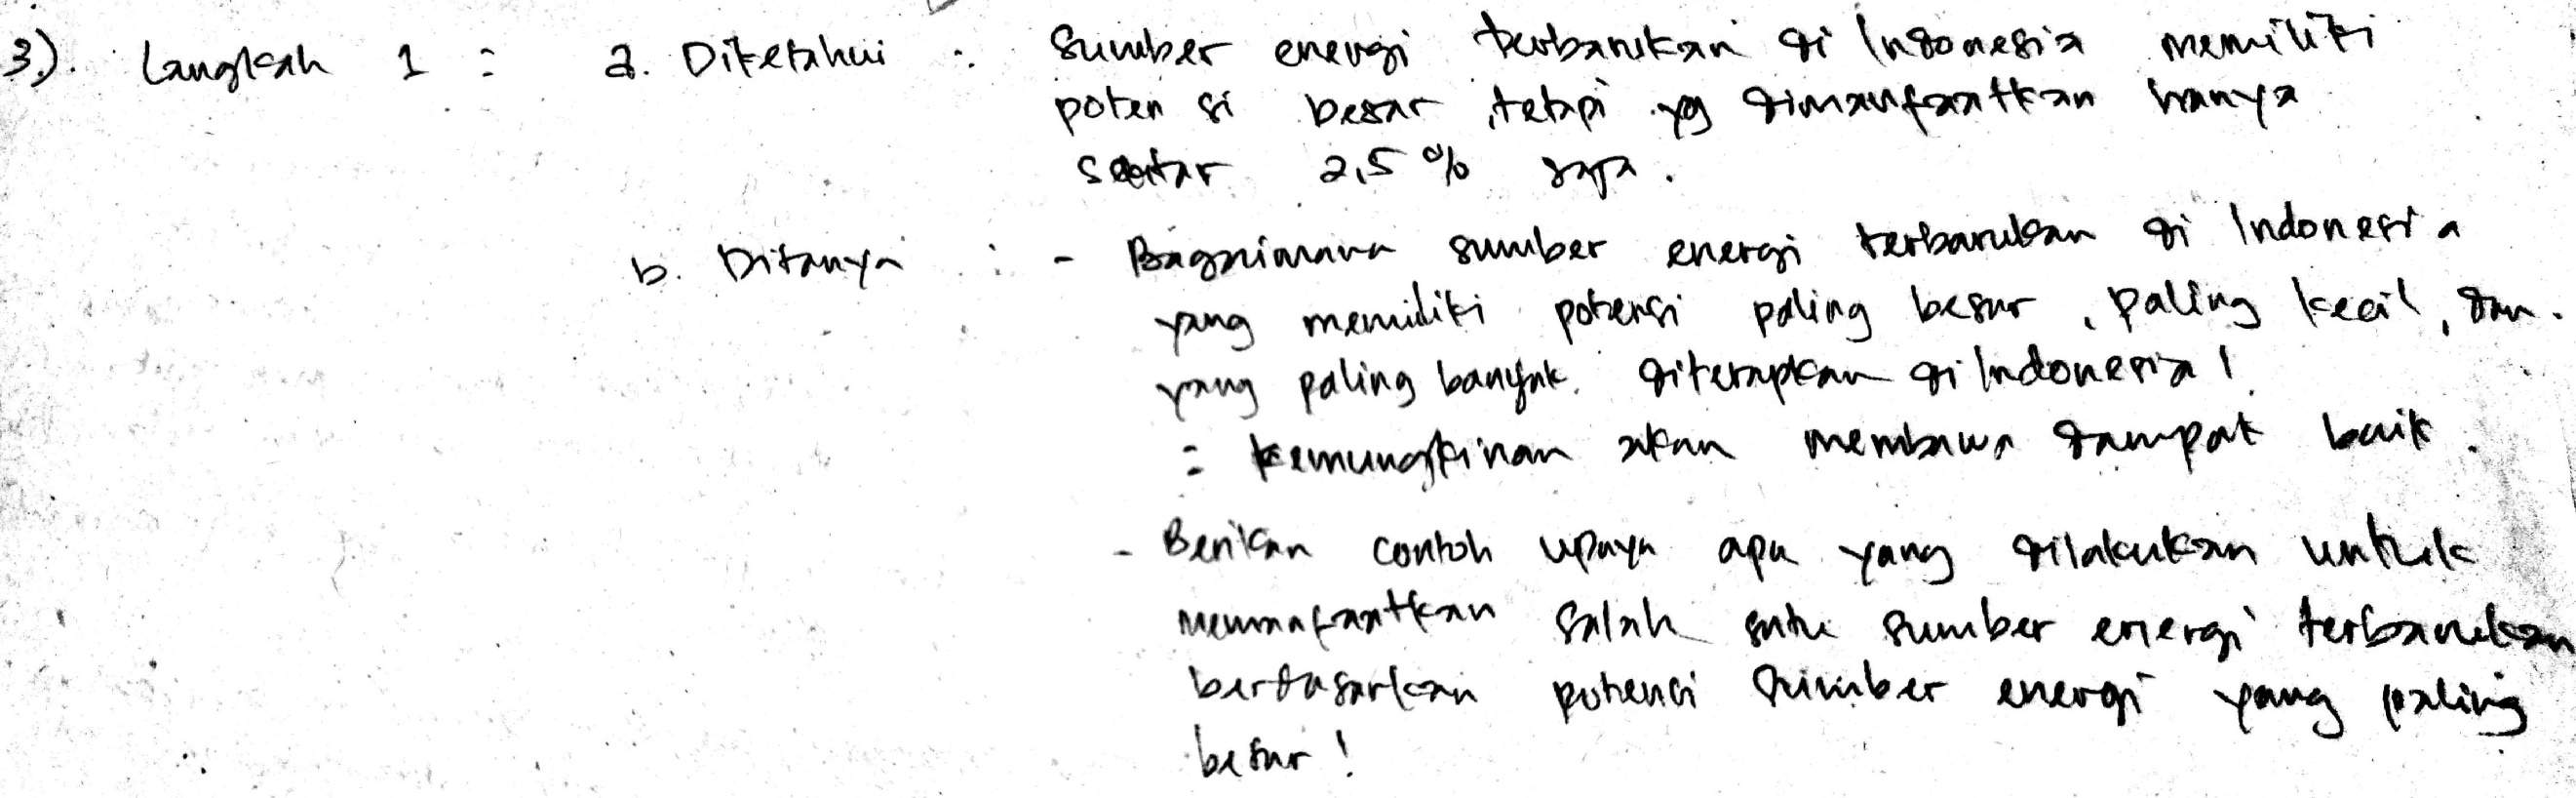 3.) Langkah 1 : a. Diketahui : Sumber energi terbarukan di Indonesia memiliki
potensi besar, tetapi yg dimanfaatkan hanya
sekitar 2,5 % saja.
b. Ditanya : - Bagaimana sumber energi terbarukan di Indonesia
yang memiliki potensi paling besar, paling kecil, dan
yang paling banyak diterapkan di Indonesia!
= kemungkinan akan membawa dampak baik.
- Berikan contoh upaya apa yang dilakukan untuk
memanfaatkan salah satu sumber energi terbarukan
berdasarkan potensi sumber energi yang paling
besar!